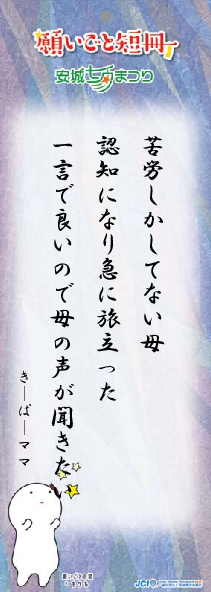 願いごと短冊
安城七夕まつり
苦労しかしてない母
認知になり急に旅立った
一言で良いので母の声が聞きた
きーばーママ
JCI